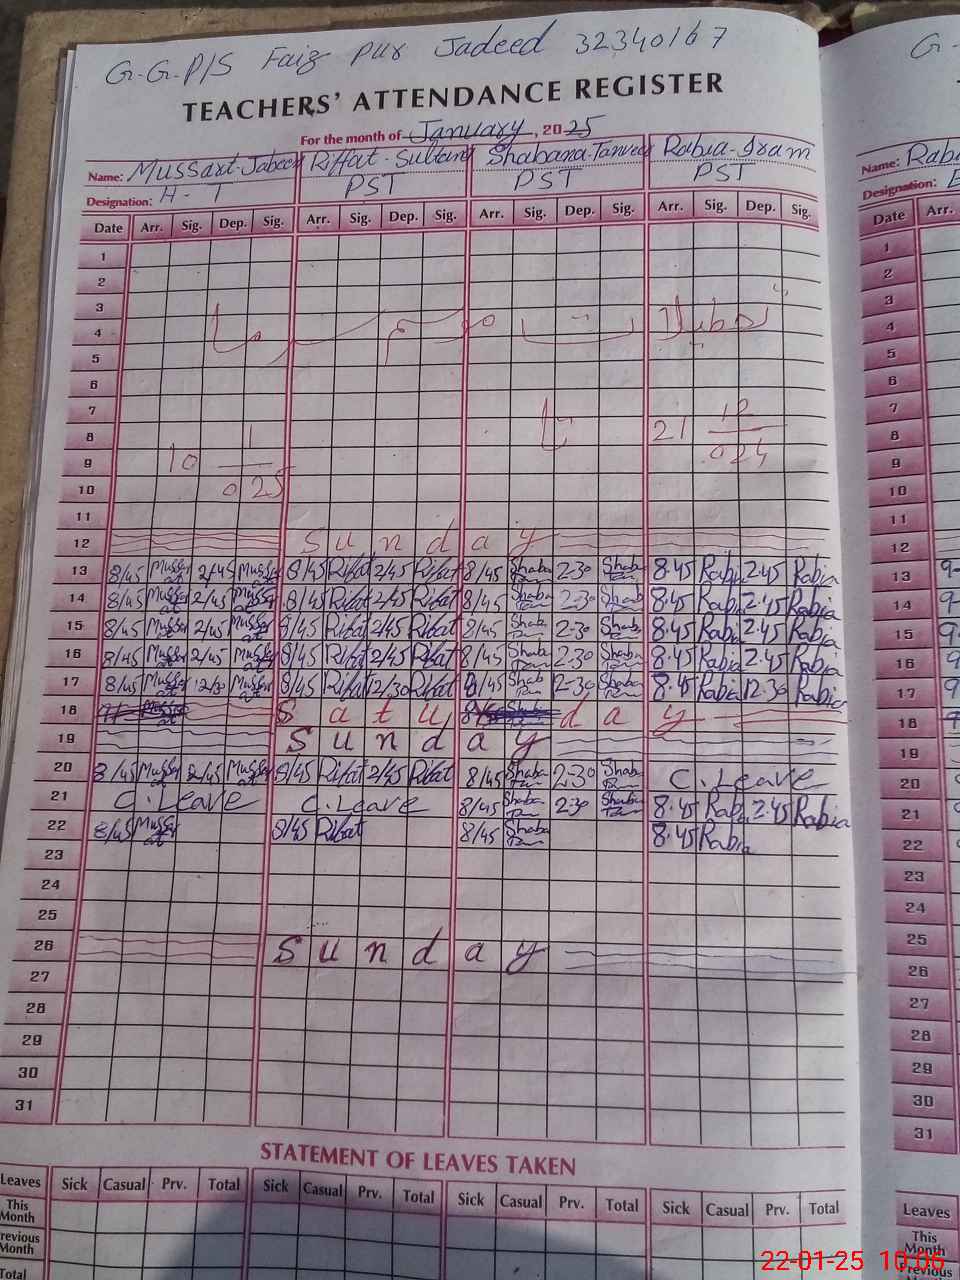 G.G.P/S Faiz pur Jadeed 32340167
TEACHERS' ATTENDANCE REGISTER
For the month of January, 2025
Name: Mussart-Jabeen Riffat-Sultana Shabana-Tanveer Rabia-Iram
Designation: H-T PST PST PST
Date Arr. Sig. Dep. Sig. Arr. Sig. Dep. Sig. Arr. Sig. Dep. Sig. Arr. Sig. Dep. Sig.
1
2
3
4 تعطیلات موسم سرما
5
6
7
8 21 12/024 تا
9 10 1/025
10
11
12 Sunday
13 8/45 Mussarat 2/45 Mussarat 8/45 Rifat 2/45 Rifat 8/45 Shaba Tan 2-30 Shaba Tan 8.45 Rabia 2.45 Rabia
14 8/45 Mussarat 2/45 Mussarat 8/45 Rifat 2/45 Rifat 8/45 Shaba Tan 2-30 Shaba Tan 8.45 Rabia 2.45 Rabia
15 8/45 Mussarat 2/45 Mussarat 8/45 Rifat 2/45 Rifat 8/45 Shaba Tan 2-30 Shaba Tan 8.45 Rabia 2.45 Rabia
16 8/45 Mussarat 2/45 Mussarat 8/45 Rifat 2/45 Rifat 8/45 Shaba Tan 2-30 Shaba Tan 8.45 Rabia 2.45 Rabia
17 8/45 Mussarat 12/30 Mussarat 8/45 Rifat 12/30 Rifat 8/45 Shaba Tan 12-30 Shaba Tan 8.45 Rabia 12.30 Rabia
18 Satuday
19 Sunday
20 8/45 Mussarat 2/45 Mussarat 8/45 Rifat 2/45 Rifat 8/45 Shaba Tan 2-30 Shaba Tan C.Leave
21 C.Leave C.Leave 8/45 Shaba Tan 2-30 Shaba Tan 8.45 Rabia 2.45 Rabia
22 8/45 Mussarat 8/45 Rifat 8/45 Shaba Tan 8.45 Rabia
23
24
25
26 Sunday
27
28
29
30
31
STATEMENT OF LEAVES TAKEN
Leaves Sick Casual Prv. Total Sick Casual Prv. Total Sick Casual Prv. Total Sick Casual Prv. Total
This Month
Previous Month
Total
G-
Name: Rabi
Designation:
Date Arr.
1
2
3
4
5
6
7
8
9
10
11
12
13 9-
14 9-
15 9.
16 9
17 9
18
19
20
21
22
23
24
25
26
27
28
29
30
31
Leaves
This Month
Previous
22-01-25 10:06